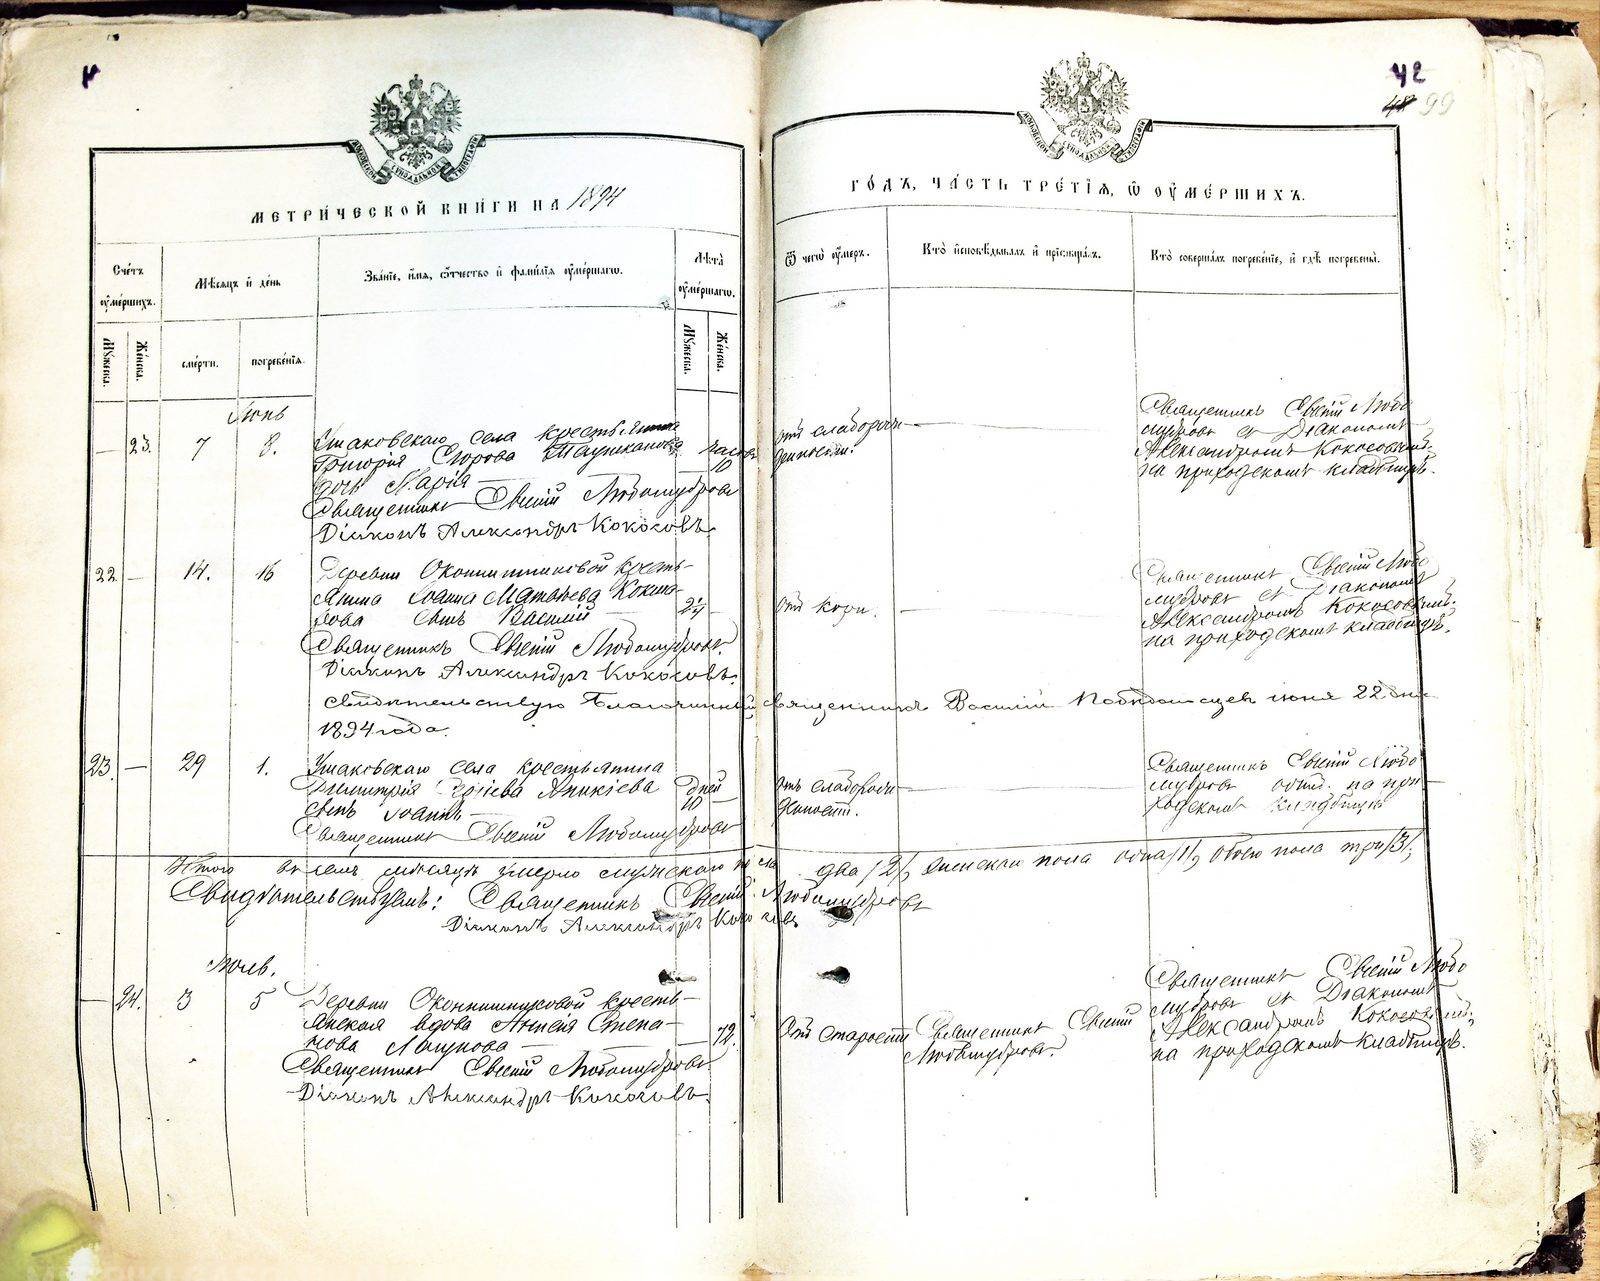 42
48 99
МЕТРИ́ЧЕСКОЙ КНИ́ГИ НА 1894
ГО́ДЪ, ЧА́СТЬ ТРЕ́ТІЯ, Ѿ ОУ҆МЕ́РШИХЪ.
Сче́тъ оу҆ме́ршихъ.
Мѣ́сяцъ и҆ де́нь
Зва́ніе, и҆́мя, ѻ҆́тчество и҆ фами́лія оу҆ме́ршагѡ.
Лѣ́та оу҆ме́ршагѡ.
Ѿ чегѡ̀ оу҆́меръ.
Кто̀ и҆сповѣ́дывалъ и҆ пріѡбща́лъ.
Кто̀ соверша́лъ погребе́ніе, и҆ гдѣ̀ погребены̀.
Му́жеска.
Же́нска.
сме́рти.
погребе́нія.
Му́жеска.
Же́нска.
Іюнь
— 23. 7 8.
Ушаковскаго села крестьянина
Григорія Егорова
дочь Марія
Священникъ Евгеній Любомудровъ
Діаконъ Александръ Кокосовъ.
часовъ
10
отъ слаборож-
денности.
Священникъ Евгеній Любо
мудровъ съ Діакономъ
Александромъ Кокосовымъ.
на приходскомъ кладбищѣ.
22 — 14. 16
Деревни Оконишниковой кресть-
янина Іоанна Матѳеева
сынъ Василій
Священникъ Евгеній Любомудровъ.
Діаконъ Александръ Кокосовъ.
отъ кори.
Священникъ Евгеній Любо
мудровъ съ Діакономъ
Александромъ Кокосовымъ.
на приходскомъ кладбищѣ.
Свидѣтельствую Благочинный священникъ Василій Побѣдоносцевъ іюня 22 дня
1894 года.
23. — 29 1.
Ушаковскаго села крестьянина
Димитрія Аникіева
сынъ Іоаннъ
Священникъ Евгеній Любомудровъ
дней
10
отъ слаборож-
денности.
Священникъ Евгеній Любо
мудровъ на при-
ходскомъ кладбищѣ
Итого въ семъ мѣсяцѣ умерло мужскаго пола два /2/, женскаго пола одна /1/, обоего пола три /3/;
Свидѣтельствуемъ: Священникъ Евгеній Любомудровъ
Діаконъ Александръ Кокосовъ.
Іюль.
— 24. 3 5
Деревни Оконишниковой кресть-
янская вдова Степа-
нова
Священникъ Евгеній Любомудровъ
Діаконъ Александръ Кокосовъ.
72.
Отъ старости
Священникъ Евгеній
Любомудровъ.
Священникъ Евгеній Любо
мудровъ съ Діакономъ
Александромъ Кокосовымъ,
на приходскомъ кладбищѣ.